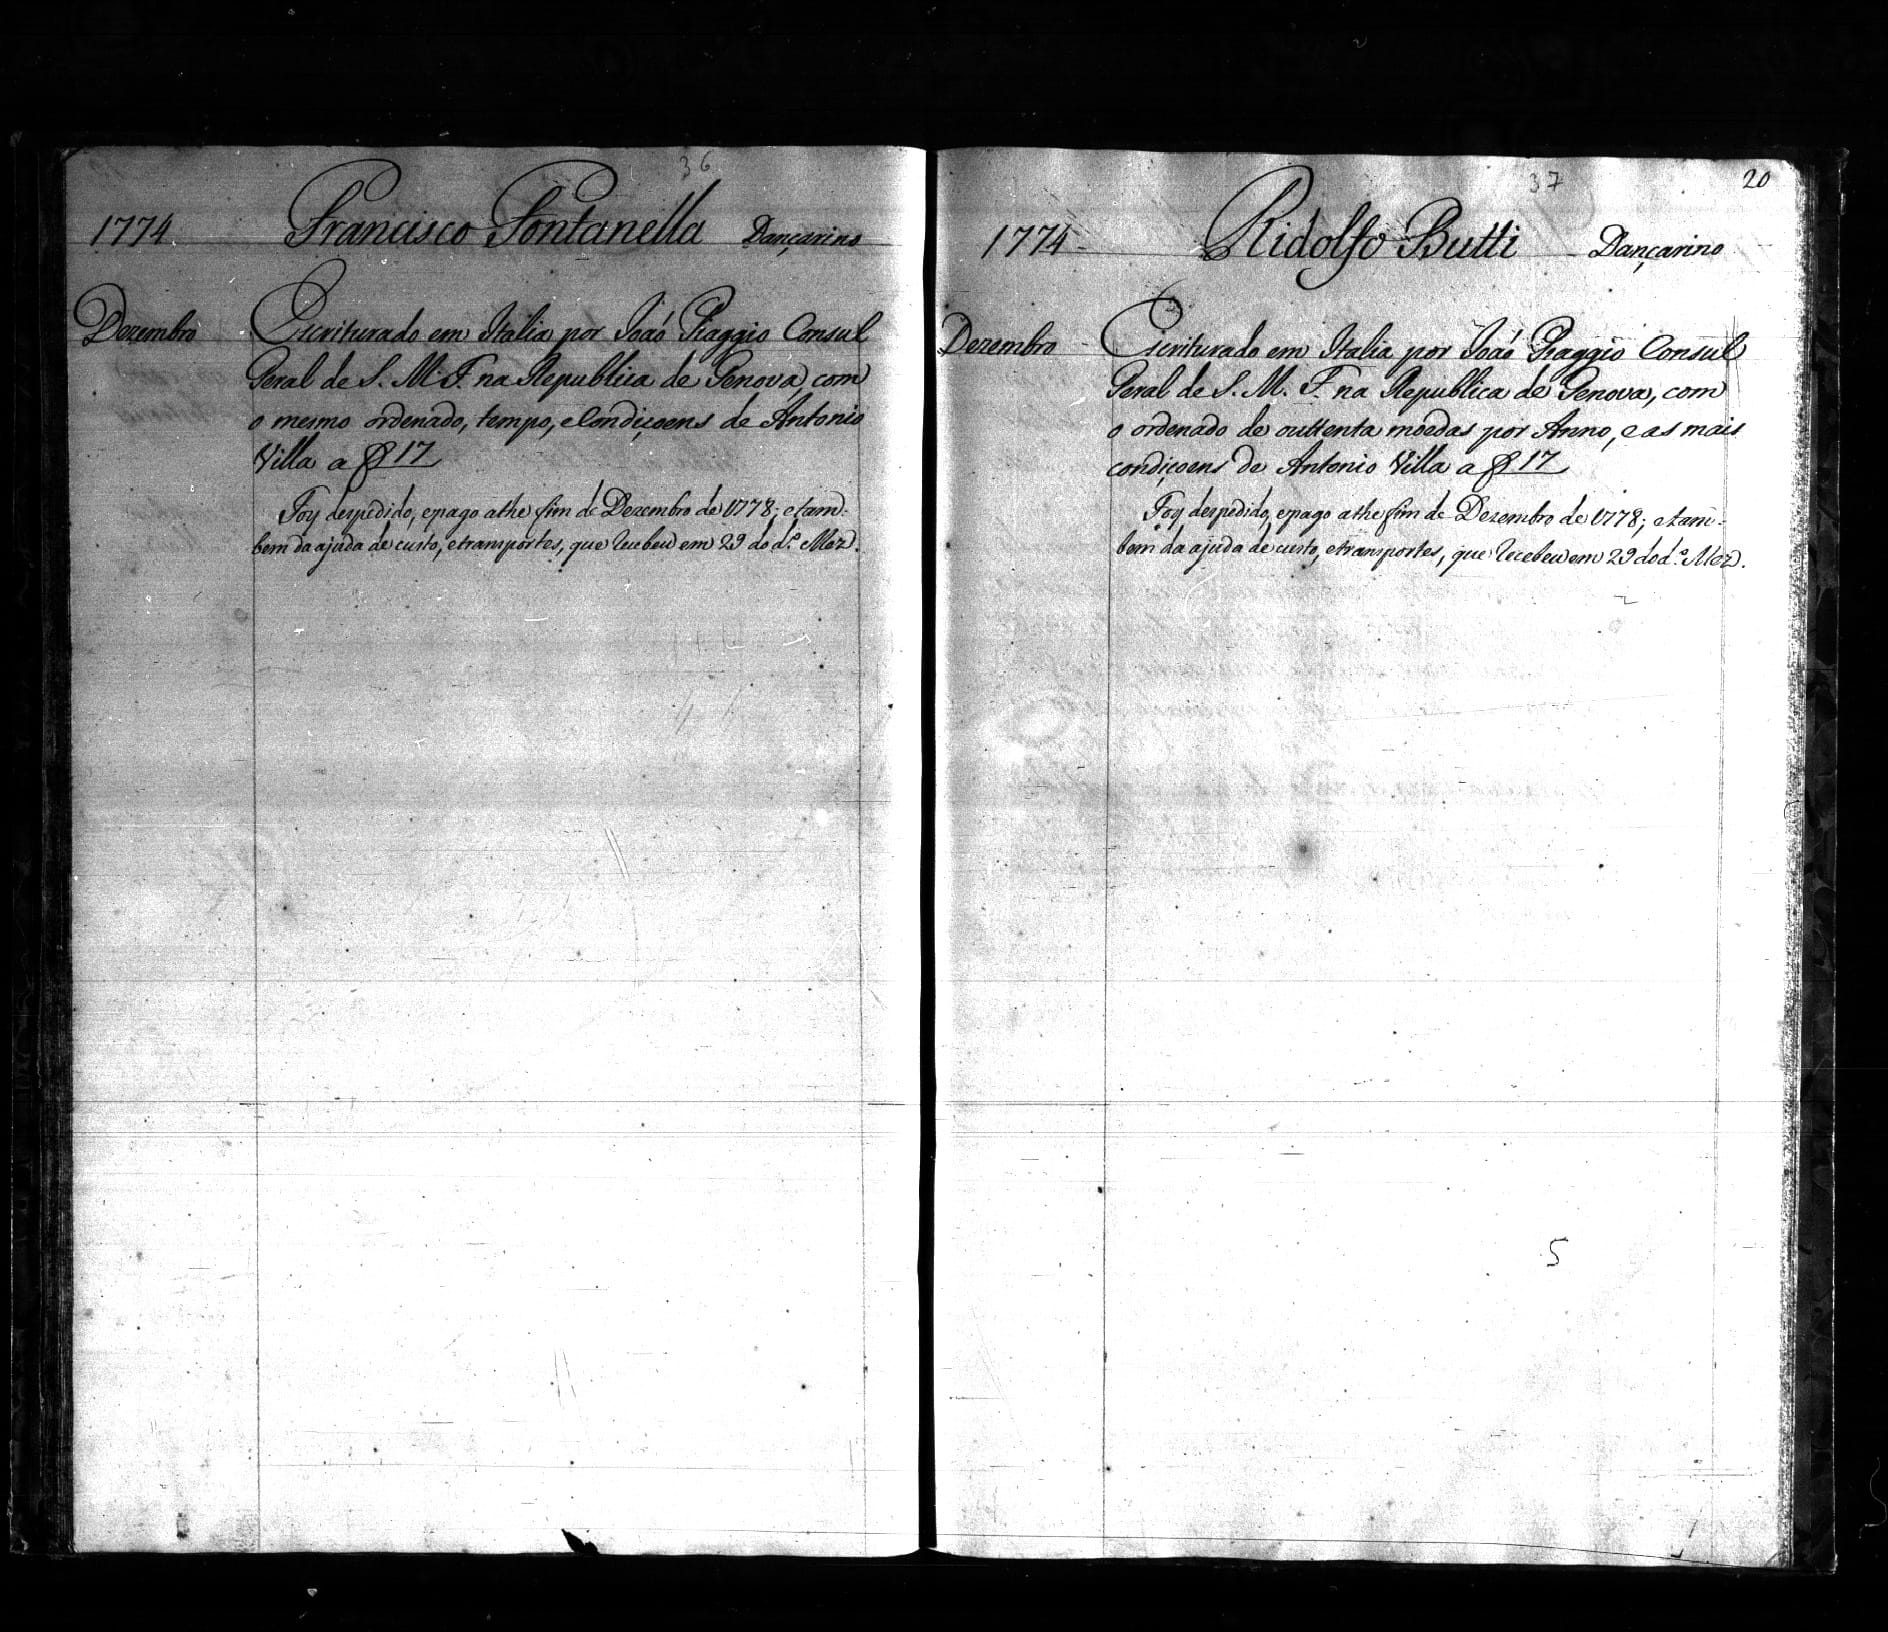 36
1774 Francisco Fontanella Dançarino
Dezembro Escriturado em Italia por João Piaggio Consul
Geral de S. M. F. na Republica de Genova, com
o mesmo ordenado, tempo, e Condiçoens de Antonio
Villa a f 17
Foy despedido, e pago athe fim de Dezembro de 1778; e tam-
bem da ajuda de custo, e transportes, que recebeu em 29 do d.º Mez.
37 20
1774 Ridolfo Butti Dançarino
Dezembro Escriturado em Italia por João Piaggio Consul
Geral de S. M. F. na Republica de Genova, com
o ordenado de outtenta moedas por Anno, e as mais
condiçoens de Antonio Villa a f 17
Foy despedido, e pago athe fim de Dezembro de 1778; e tam-
bem da ajuda de custo, e transportes, que recebeu em 29 do d.º Mez.